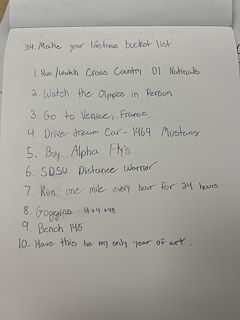 34. Make your lifetime bucket list
1. Run/Watch Cross Country D1 Nationals
2. Watch the Olympics in Person
3. Go to Venice, France
4. Drive dream Car - 1969 Mustang
5. Buy Alpha Fly's
6. SDSU Distance Warrior
7. Run one mile every hour for 24 hours
8. Goggins 4x4x48
9. Bench 145
10. Have this be my only year of art.